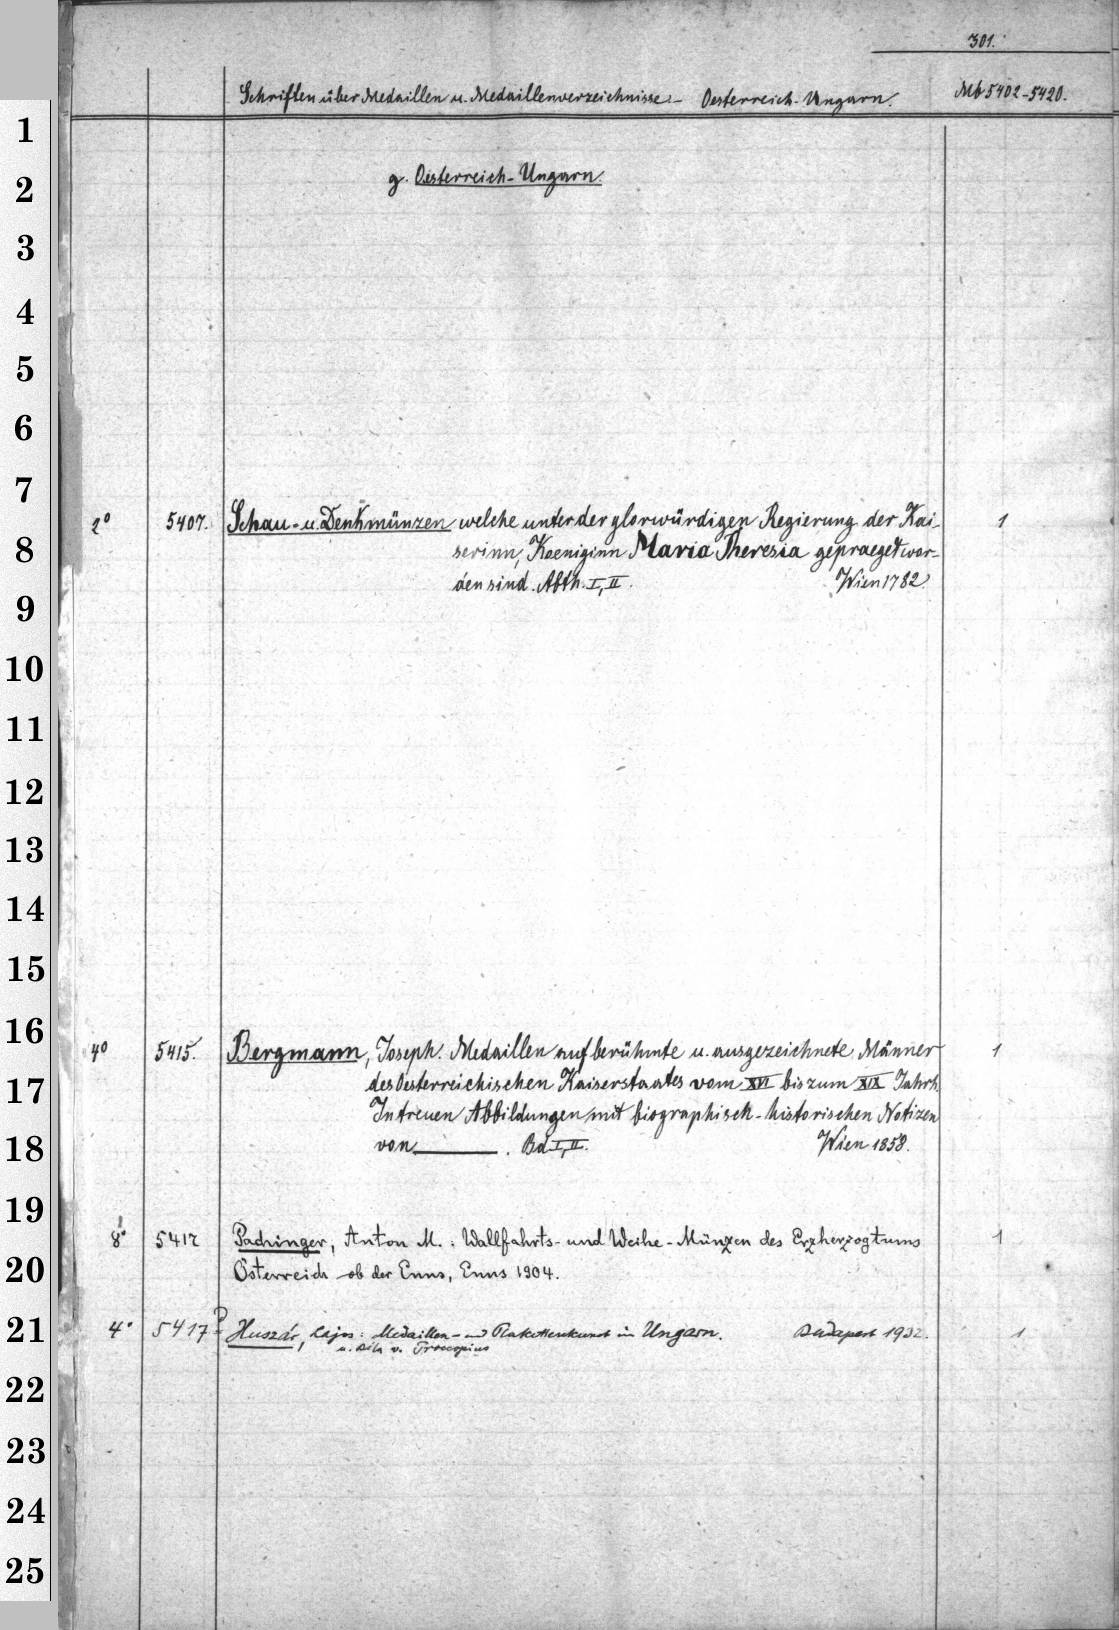 301.
Schriften über Medaillen u. Medaillenverzeichnisse. – Oesterreich-Ungarn. Mb 5402-5420.
g. Oesterreich-Ungarn.
2° 5407. Schau- u. Denkmünzen welche unter der glorwürdigen Regierung der Kai- 1
serinn, Koeniginn Maria Theresia gepraeget wor-
den sind. Abth. I, II. Wien 1782.
4° 5415. Bergmann, Joseph. Medaillen auf berühmte u. ausgezeichnete Männer 1
des Oesterreichischen Kaiserstaates vom XVI bis zum XIX Jahrh.
In treuen Abbildungen mit biographisch-historischen Notizen
von ———. Bd I, II. Wien 1858.
8° 5417 Pachinger, Anton M.: Wallfahrts- und Weihe-Münzen des Erzherzogtums 1
Österreich ob der Enns, Enns 1904.
4° 5417 Huszár, Lajos: Medaillen- und Plakettenkunst in Ungarn. Budapest 1932. 1
u. Béla v. Procopius
1
2
3
4
5
6
7
8
9
10
11
12
13
14
15
16
17
18
19
20
21
22
23
24
25